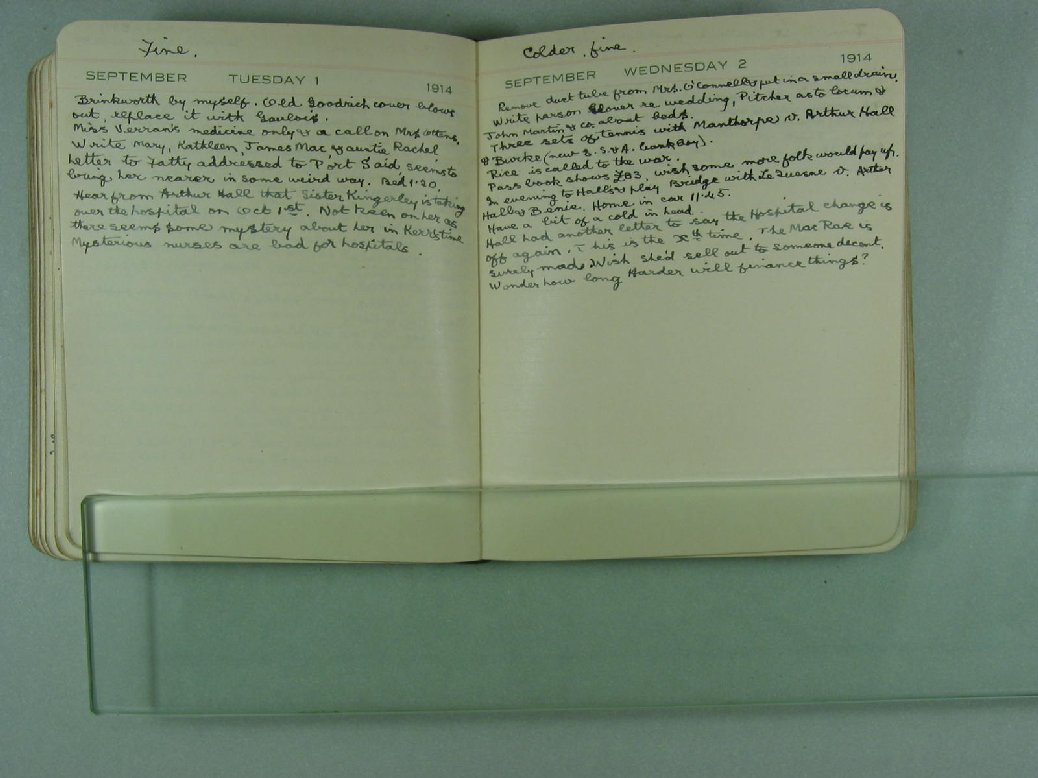 Fine.
SEPTEMBER TUESDAY 1
1914
Brinkworth by myself. Old Goodrich cover blows
out, replace it with Gaulois.
Miss Verran's medicine only & a call on Mrs Ottens.
Write Mary, Kathleen, James Mac & auntie Rachel
Letter to Fatty addressed to Port Said, seems to
bring her nearer in some weird way. Bed 1.30.
Hear from Arthur Hall that Sister Kingerley is taking
over the hospital on Oct 1st. Not keen on her as
there seems some mystery about her in
Mysterious nurses are bad for hospitals.
Colder, fine.
SEPTEMBER WEDNESDAY 2
1914
Remove duct tube from Mrs. O'Connell & put in a small drain.
Write parson Glover re wedding, Pitcher as to locum &
John Martin & co. about beds.
Three sets of tennis with Manthorpe v. Arthur Hall
& Burke (new E. S. & A. bank Boy).
Rice is called to the war.
Pass book shows £83, wish some more folk would pay up.
In evening to Halls & play Bridge with Le Quesne v. Arthur
Hall & Benie. Home in car 11.45.
Have a bit of a cold in head.
Hall had another letter to say the Hospital change is
off again. This is the Xth time. The Mac Rae is
surely mad. Wish she'd sell out to someone decent.
Wonder how long Harder will finance things?